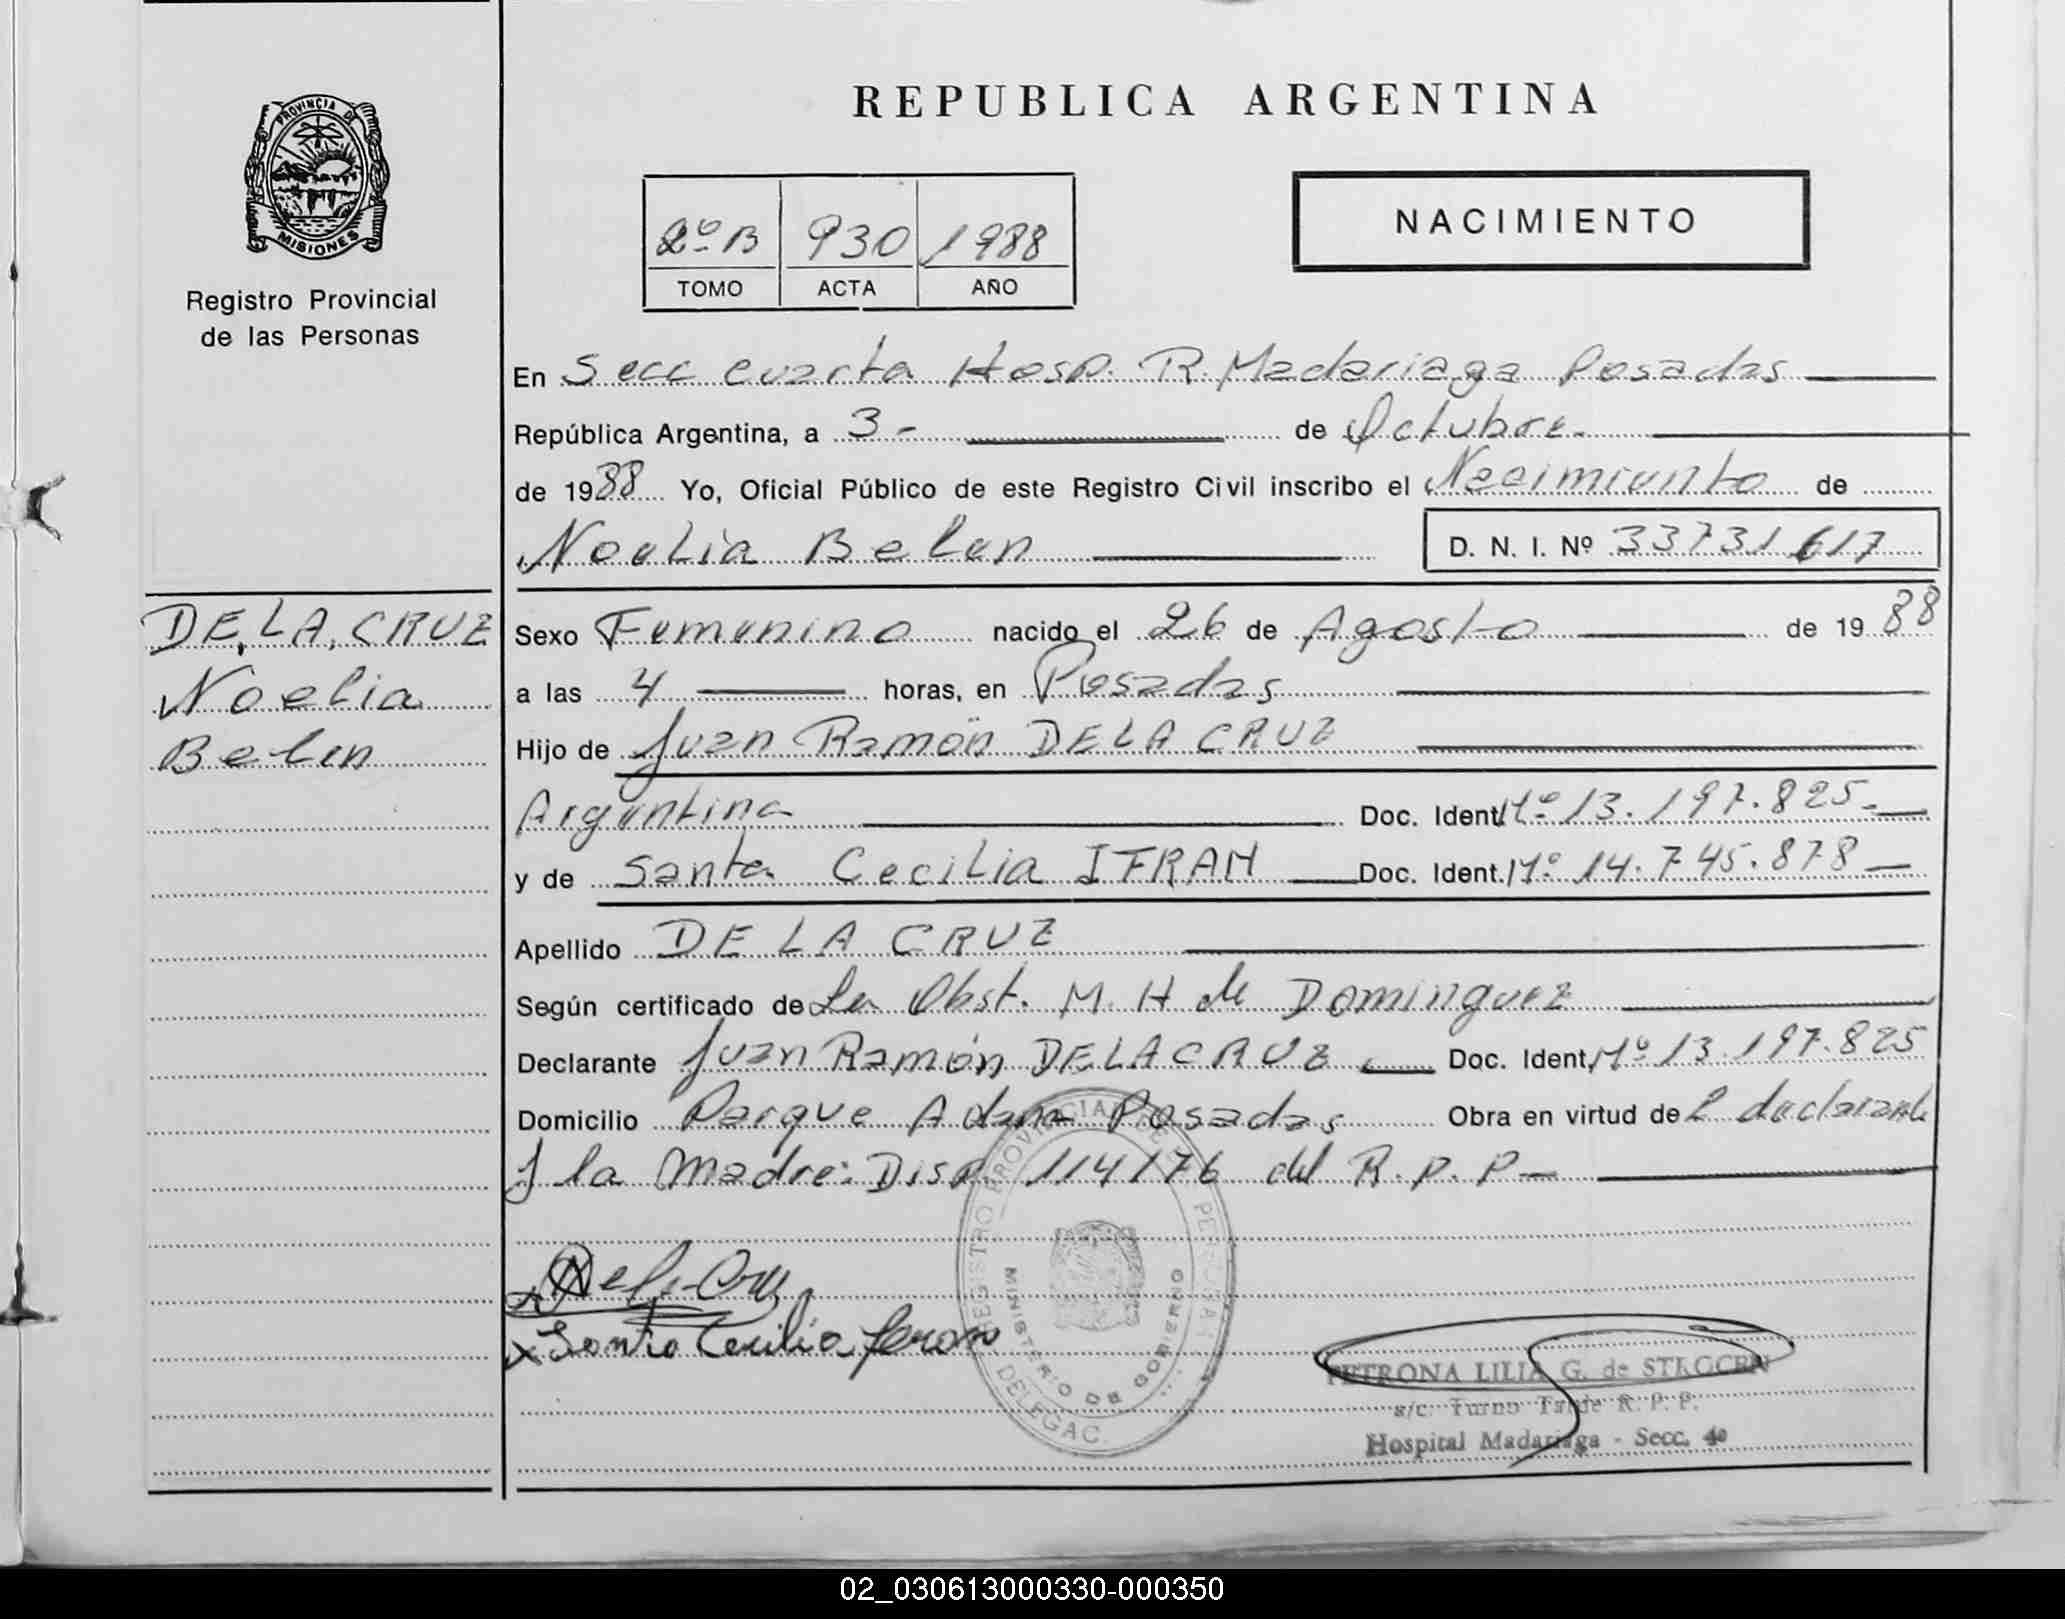 PROVINCIA DE
MISIONES
Registro Provincial
de las Personas
REPUBLICA ARGENTINA
2º B 930 1988
TOMO ACTA AÑO
NACIMIENTO
En Secc cuarta Hosp. R. Madariaga Posadas
República Argentina, a 3- de Octubre.
de 1988 Yo, Oficial Público de este Registro Civil inscribo el Nacimiento de
Noelia Belen D. N. I. Nº 33731617
DE LA CRUZ
Noelia
Belen
Sexo Femenino nacido el 26 de Agosto de 1988
a las 4 horas, en Posadas
Hijo de Juan Ramón DE LA CRUZ
Argentina Doc. Ident. Mº 13.197.825.-
y de Santa Cecilia IFRAN Doc. Ident. Mº 14.745.878-
Apellido DE LA CRUZ
Según certificado de La Obst. M. H de Dominguez
Declarante Juan Ramón DE LA CRUZ Doc. Ident. Mº 13.197.825
Domicilio Parque Adam Posadas Obra en virtud de l declarante
y la Madre: Disp. 114/76 del R.P.P-
De la Cruz
x Santa Cecilia
REGISTRO PROVINCIAL DE PERSONAS
MINISTERIO DE GOBIERNO
DELEGAC.
PETRONA LILIA G. de
a/c. Turno Tarde R. P. P.
Hospital Madariaga - Secc. 4º
02_030613000330-000350